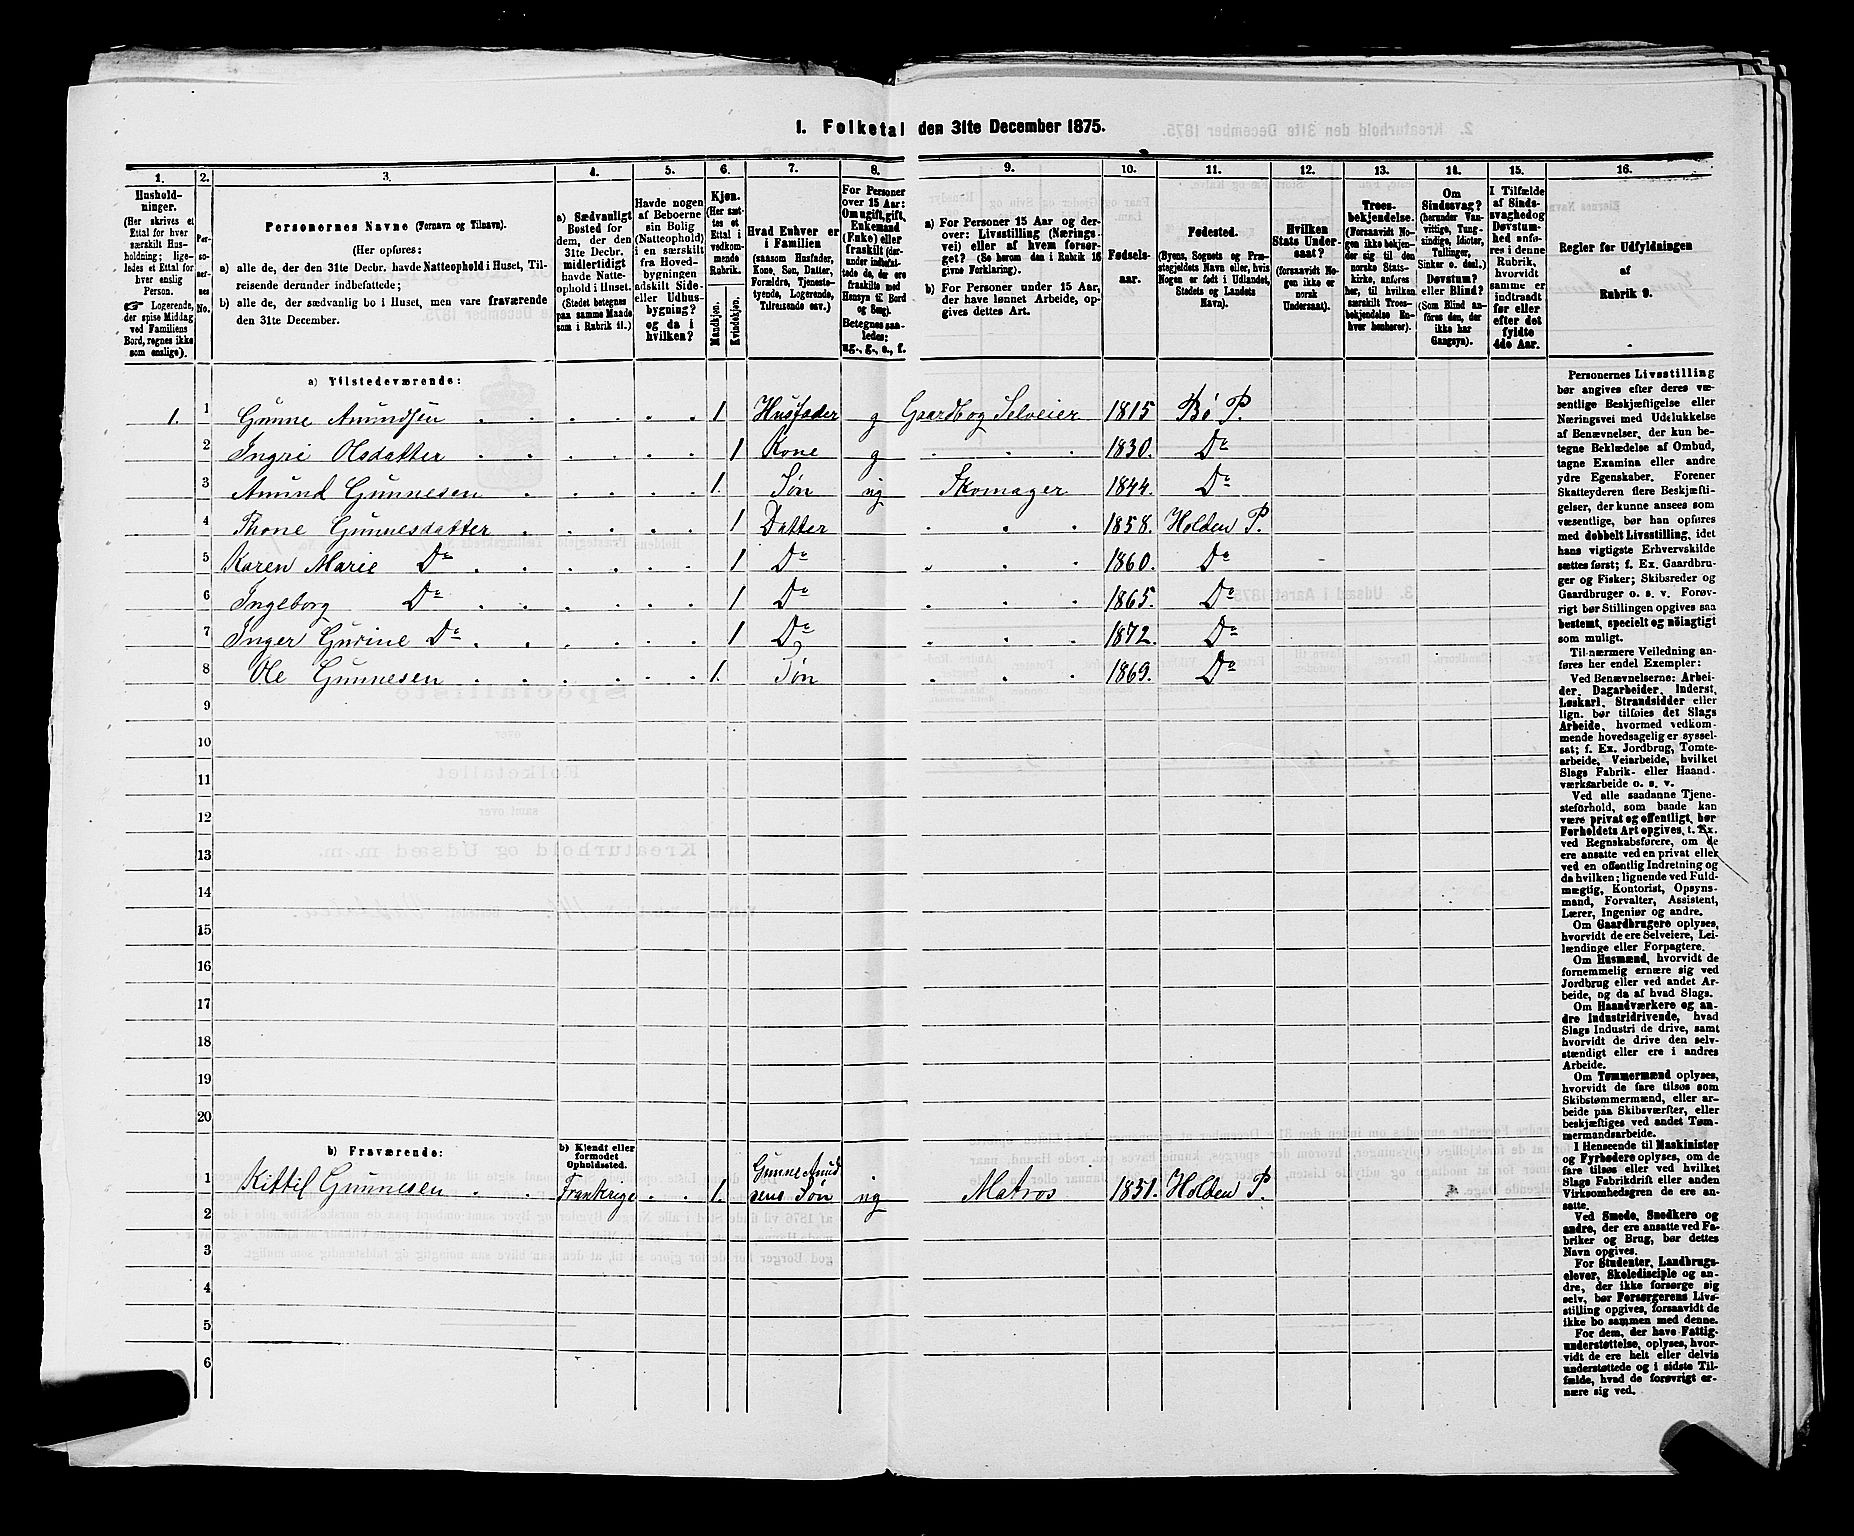 1. Folketal den 31te December 1875.
1. 2. 3. 4. 5. 6. 7. 8. 9. 10. 11. 12. 13. 14. 15. 16.
Husholdninger.
(Her skrives et
Ettal for hver
særskilt Husholdning;
ligeledes et Ettal for
hver enslig
Person.
☞ Logerende,
der spise Middag
ved Familiens
Bord, regnes ikke
som enslige).
Personernes No.
Personernes Navne (Fornavn og Tilnavn).
(Her opføres:
a) alle de, der den 31te Decbr. havde Natteophold i Huset, Tilreisende derunder indbefattede;
b) alle de, der sædvanlig bo i Huset, men vare fraværende
den 31te December.
a) Sædvanligt
Bosted for
dem, der den
31te Decbr.
midlertidigt
havde Natteophold i Huset.
(Stedet betegnes
paa samme Maade
som i Rubrik 11.)
Havde nogen
af Beboerne
sin Bolig
(Natteophold)
i en særskilt
fra Hovedbygningen
adskilt Side-
eller Udhusbygning?
og da i
hvilken?
Kjøn.
(Her sættes et
Ettal i
vedkommende
Rubrik.
Mandkjøn.
Kvindekjøn.
Hvad Enhver er
i Familien
(saasom Husfader,
Kone, Søn, Datter,
Forældre, Tjenestetyende, Logerende,
Tilreisende osv.)
For Personer
over 15 Aar:
Om ugift, gift,
Enkemand
(Enke) eller
fraskilt (derunder indbefattede de, der ere
fraskilte med
Hensyn til Bord
og Seng).
Betegnes saaledes:
ug., g., e., f.
a) For Personer 15 Aar og derover: Livsstilling (Næringsvei) eller af hvem forsørget? (Se herom den i Rubrik 16
givne Forklaring).
b) For Personer under 15 Aar,
der have lønnet Arbeide, opgives dettes Art.
Fødselsaar.
Fødested.
(Byens, Sognets og Præstegjeldets Navn eller, hvis
Nogen er født i Udlandet,
Stedets og Landets
Navn).
Hvilken
Stats Undersaat?
(forsaavidt Nogen ikke er
norsk
Undersaat).
Troesbekjendelse.
(Forsaavidt Nogen ikke bekjender sig til den
norske Statskirke, anføres
her, til hvilken
særskilt Troesbekjendelse Enhver henhører).
Om
Sindssvag?
(herunder Vanvittige, Tungsindige, Idioter,
Tullinger,
Sinker o. desl.)
Døvstum?
eller Blind?
(Som Blind anføres den, der
ikke har
Gangsyn).
I Tilfælde
af Sindssvaghed og
Døvstumhed anføres i denne
Rubrik,
hvorvidt
samme er
indtraadt
før eller
efter det
fyldte
4de Aar.
Regler for Udfyldningen
af
Rubrik 9.
a) Tilstedeværende:
1. 1 Gunne Amundsen 1 Husfader g Gaardb og Selveier 1815 Bø P.
2 Ingri Olsdatter 1 Kone g 1830. Do
3 Amund Gunnesen 1. Søn ug Skomager 1844. Do
4 Thone Gunnesdatter 1 Datter 1858. Holden P.
5 Karen Marie Do 1 Do 1860. Do
6 Ingeborg Do 1 Do 1865. Do
7 Inger Gurine Do 1 Do 1872. Do
8 Ole Gunnesen 1. Søn 1869. Do
9
10
11
12
13
14
15
16
17
18
19
20
b) Fraværende:
b) Kjendt eller
formodet
Opholdssted.
1 Kittil Gunnesen Frankrige 1. Gunne Amundsens Søn ug Matros 1851. Holden P.
2
3
4
5
6
Personernes Livsstilling
bør angives efter deres væsentlige Beskjæftigelse eller
Næringsvei med Udelukkelse
af Benævnelser, der kun betegne Beklædelse af Ombud,
tagne Examina eller andre
ydre Egenskaber. Forener
Skatteyderen flere Beskjæftigelser, der kunne ansees som
væsentlige, bør han opføres
med dobbelt Livsstilling, idet
hans vigtigste Erhvervskilde
sættes først; f. Ex. Gaardbruger og Fisker; Skibsreder og
Gaardbruger o. s. v. Forøvrigt bør Stillingen opgives saa
bestemt, specielt og nöiagtigt
som muligt.
Til nærmere Veiledning anføres her endel Exempler:
Ved Benævnelserne: Arbeider, Dagarbeider, Inderst,
Løskarl, Strandsidder eller
lign. bør tilføies det Slags
Arbeide, hvormed vedkommende hovedsagelig er sysselsat; f. Ex. Jordbrug, Tomtearbeide, Veiarbeide, hvilket
Slags Fabrik- eller Haandværksarbeide o. s. v.
Ved alle saadanne Tjenesteforhold, som baade kan
være privat og offentligt, bør
Forholdets Art opgives, t. Ex.
ved Regnskabsførere, om de
ere ansatte ved en privat eller
ved en offentlig Indretning og
da hvilken; lignende ved Fuldmægtig, Kontorist, Opsynsmand, Forvalter, Assistent,
Lærer, Ingeniør og andre.
Om Gaardbrugere oplyses,
hvorvidt de ere Selveiere, Leilændinge eller Forpagtere.
Om Husmænd, hvorvidt de
fornemmelig ernære sig ved
Jordbrug eller ved andet Arbeide, og da af hvad Slags.
Om Haandværkere og andre Industridrivende, hvad
Slags Industri de drive, samt
hvorvidt de drive den selvstændigt eller ere i andres
Arbeide.
Om Tømmermænd oplyses,
hvorvidt de fare tilsøs som
Skibstømmermænd, eller arbeide paa Skibsværfter, eller
beskjæftiges ved andet Tømmermandsarbeide.
I Henseende til Maskinister
og Fyrbødere oplyses, om de
fare tilsøs eller ved hvilket
Slags Fabrikdrift eller anden
Virksomhed de ere ansatte.
Ved Smede, Snedkere og
andre, der ere ansatte ved Fabriker og Brug, bør dettes
Navn opgives.
For Studenter, Landbrugselever, Skoledisciple og andre, der ikke forsørge sig
selv, bør Forsørgerens Livsstilling opgives, forsaavidt de
ikke bo sammen med denne.
For dem, der have Fattigunderstøttelse, oplyses, hvorvidt de ere helt eller delvis
understøttede og i sidste Tilfælde, hvad de forøvrigt ernære sig ved.